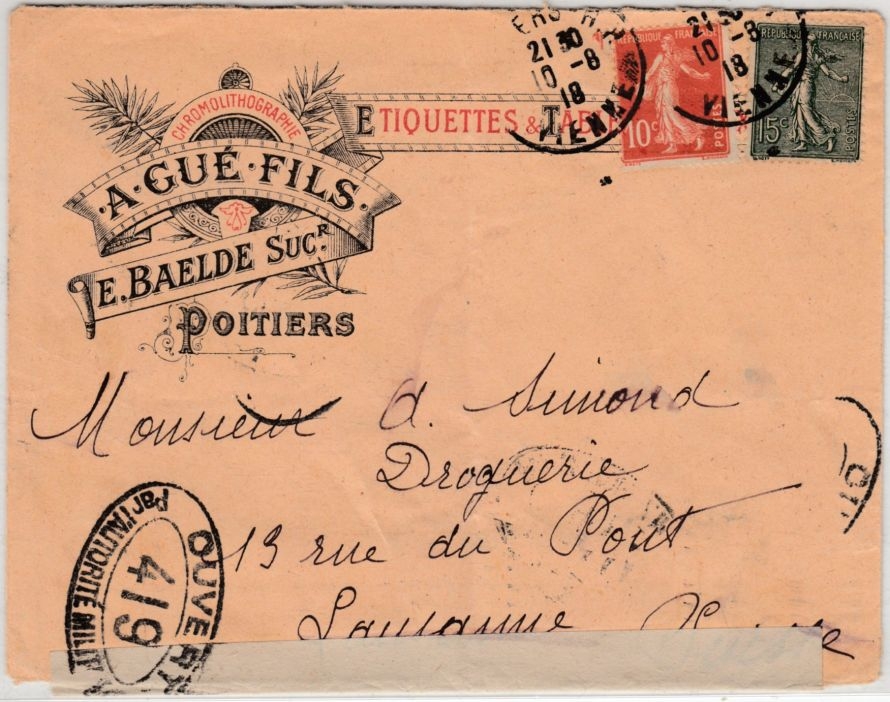 CHROMOLITHOGRAPHIE
A·GUÉ·FILS
E. BAELDE SUCR.
POITIERS
ETIQUETTES & TABL
ERS
21 30
10 -8
18
VIENNE
REPUBLIQUE FRANÇAISE
10c
POSTES
21
10 -8
18
VIENNE
REPUBLIQUE FRANÇAISE
15c
POSTES
Monsieur A. Simond
Droguerie
13 rue du Pont
Lausanne
OUVERT
419
Par l'AUTORITÉ MILIT